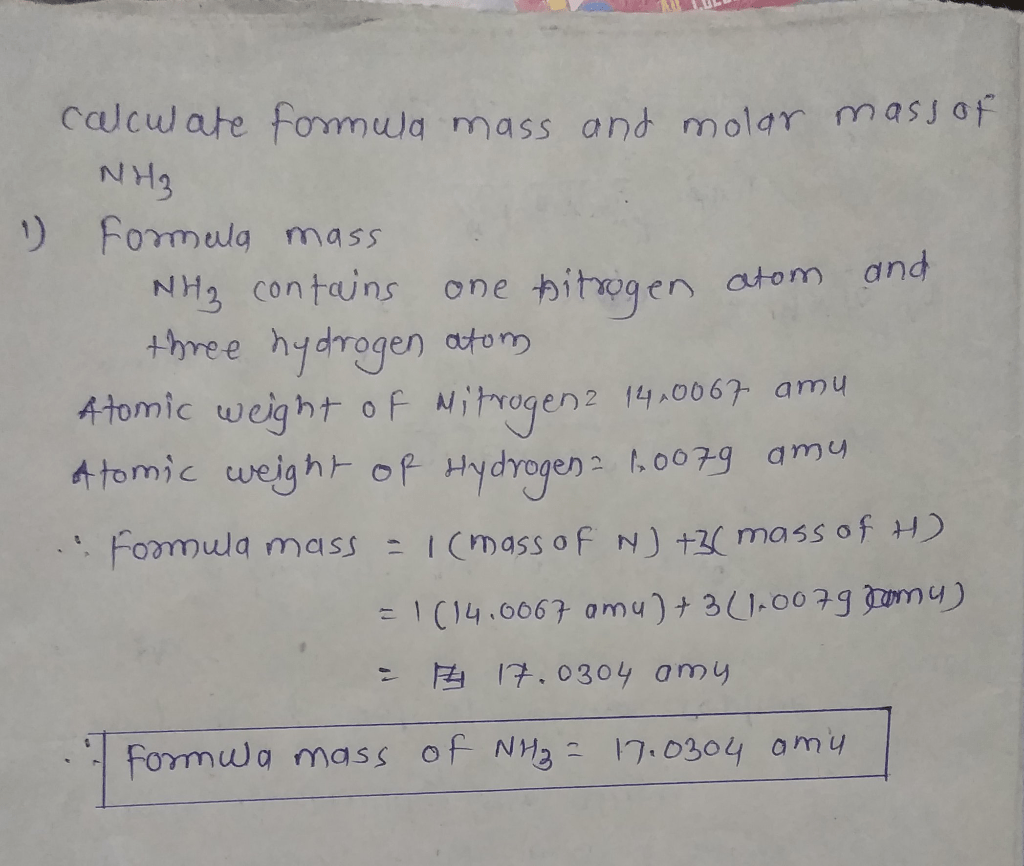 calculate formula mass and molar mass of
NH3
1) Formula mass
NH3 contains one nitrogen atom and
three hydrogen atom
Atomic weight of Nitrogen = 14.0067 amu
Atomic weight of Hydrogen = 1.0079 amu
∴ Formula mass = 1 (mass of N) + 3( mass of H)
= 1 (14.0067 amu) + 3 (1.0079 amu)
= 17.0304 amu
∴ Formula mass of NH3 = 17.0304 amu